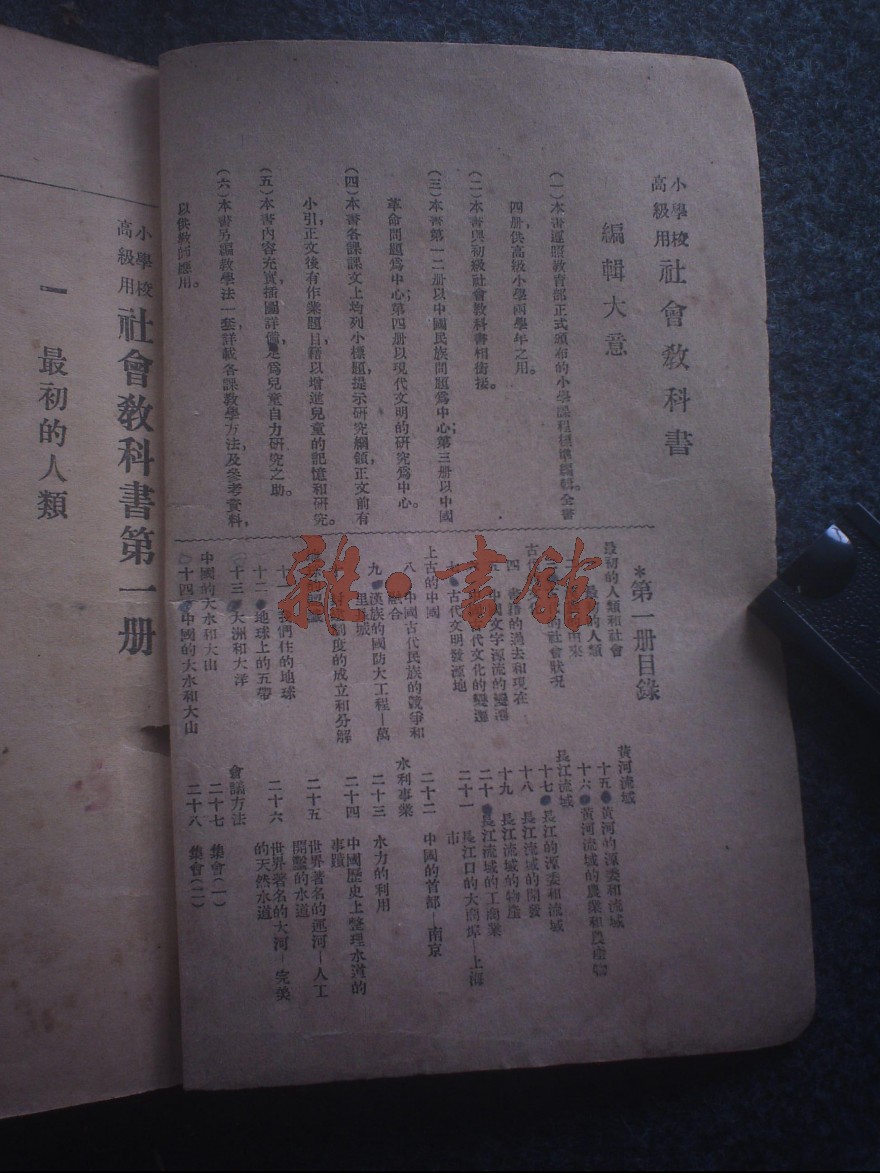 小學校高級用 社會教科書
編輯大意
(一)本書遵照教育部正式頒布的小學課程標準編輯全書
四册,供高級小學兩學年之用。
(二)本書與初級社會教科書相銜接。
(三)本書第一二册以中國民族問題爲中心;第三册以中國
革命問題爲中心;第四册以現代文明的研究爲中心。
(四)本書各課課文上均列小標題,提示研究綱領,正文前有
小引,正文後有作業題目,藉以增進兒童的記憶和研究。
(五)本書內容充實,插圖詳備,足爲兒童自力研究之助。
(六)本書另編教學法一套,詳載各課教學方法,及參考資料,
以供教師應用。
*第一册目錄
最初的人類和社會
最初的人類
由來
的社會狀况
四 書籍的過去和現在
中國文字源流的變遷
代文化的變遷
古代文明發源地
上古的中國
八 中國古代民族的競爭和
融合
九 漢族的國防大工程—萬
里長城
制度的成立和分解
我們住的地球
十二 地球上的五帶
十三 大洲和大洋
中國的大水和大山
十四 中國的大水和大山
黄河流域
十五 黄河的源委和流域
十六 黄河流域的農業和農產物
長江流域
十七 長江的源委和流域
十八 長江流域的開發
十九 長江流域的物產
二十 長江流域的工商業
二十一 長江口的大商埠—上海
市
二十二 中國的首都—南京
水利事業
二十三 水力的利用
二十四 中國歷史上整理水道的
事蹟
二十五 世界著名的運河—人工
開鑿的水道
二十六 世界著名的大河—完美
的天然水道
會議方法
二十七 集會(一)
二十八 集會(二)
小學校高級用 社會教科書第一册
一 最初的人類
雜·書館